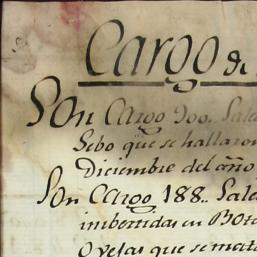 Cargo de
Son Cargo 900. Sale
Sebo que se hallaron
Diciembre del año
Son Cargo 188.. Sale
imbertidas en Bota
Ovejas que se mata